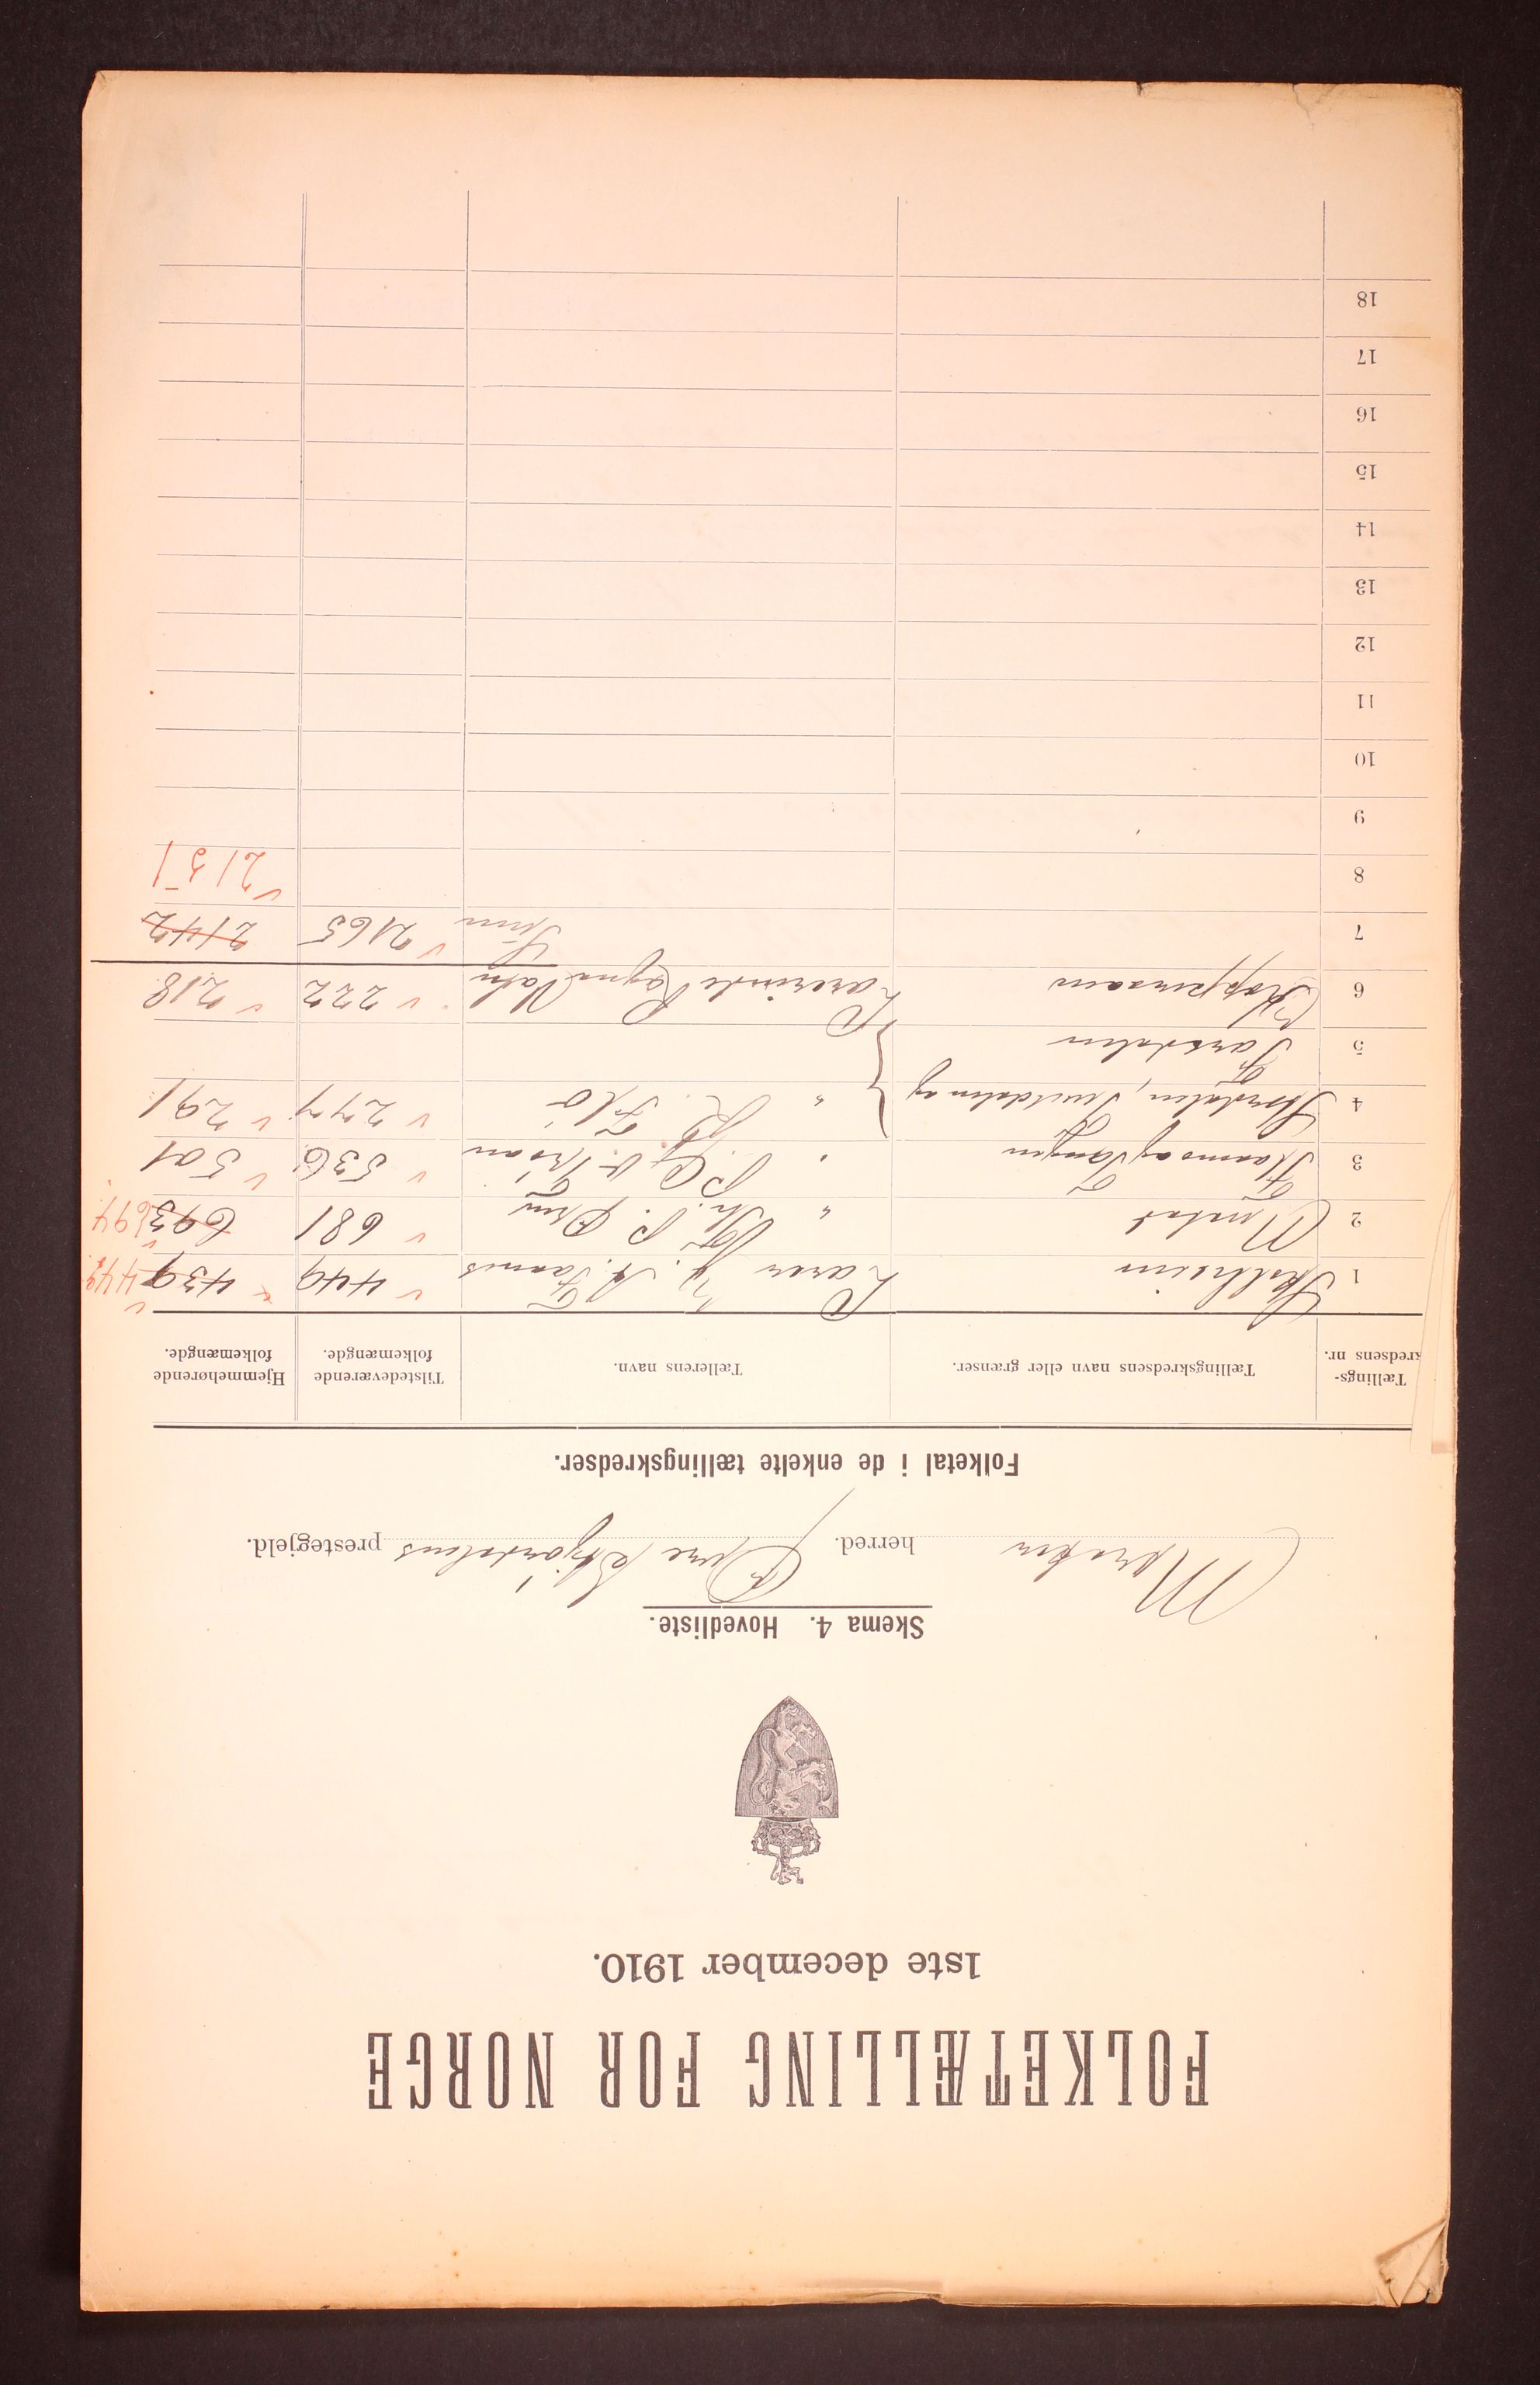 FOLKETÆLLING FOR NORGE
1ste december 1910.
Skema 4. Hovedliste.
Meraker herred. Øvre Stjørdalens prestegjeld.
Folketal i de enkelte tællingskredser.
Tællings-kredsens nr. Tællingskredsens navn eller grænser. Tællerens navn. Tilstedeværende folkemængde. Hjemmehørende folkemængde.
1 Stalheim Lærer A. Faanes 449 439 447
2 Mestad " P. 681 693 694
3 Flaamo og Tangen " P. 536 501
4 Stordalen, Tevldalen og " K. Flø 277 291
5 Torsdalen
6 Kopperaaen Lærerinde Ragna 222 218
7 Sum 2165 2142
8 2151
9
10
11
12
13
14
15
16
17
18